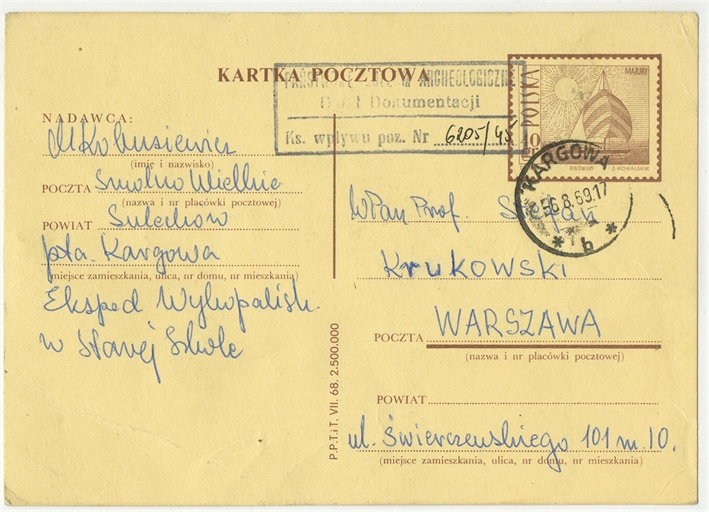 KARTKA POCZTOWA
PAŃSTWOWE MUZEUM ARCHEOLOGICZNE
Dział Dokumentacji
Ks. wpływu poz. Nr 6205/45
POLSKA
MAZURY
40
RWZW66 Z.KOWALSKI
KARGOWA
6.8.69.17
* b *
NADAWCA:
M Kobusiewicz
(imię i nazwisko)
POCZTA Smolno Wielkie
(nazwa i nr placówki pocztowej)
POWIAT Sulechów
pta. Kargowa
(miejsce zamieszkania, ulica, nr domu, nr mieszkania)
Eksped Wykopalisk.
w Starej Szkole
P.P.T.i T. VII. 68. 2.500.000
WPan Prof. Stefan
Krukowski
POCZTA WARSZAWA
(nazwa i nr placówki pocztowej)
POWIAT
ul. Świerczewskiego 101 m. 10.
(miejsce zamieszkania, ulica, nr domu, nr mieszkania)